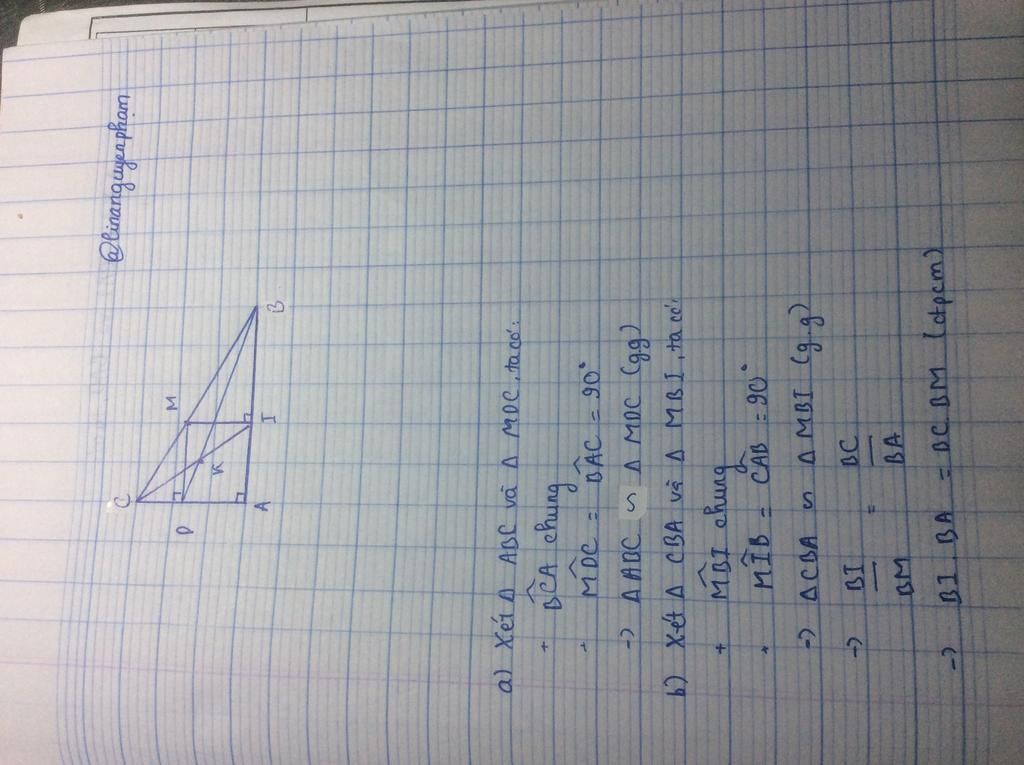 @linanguyenpham
C
D
M
K
A
I
B
a) Xét Δ ABC và Δ MDC, ta có:
+ BĈA chung
+ MD̂C = BÂC = 90°
-> Δ ABC ∽ Δ MDC (g.g)
b) Xét Δ CBA và Δ MBI, ta có:
+ MB̂I chung
+ MÎB = CÂB = 90°
-> Δ CBA ∽ Δ MBI (g.g)
-> BI/BM = BC/BA
-> BI . BA = BC . BM (đpcm)